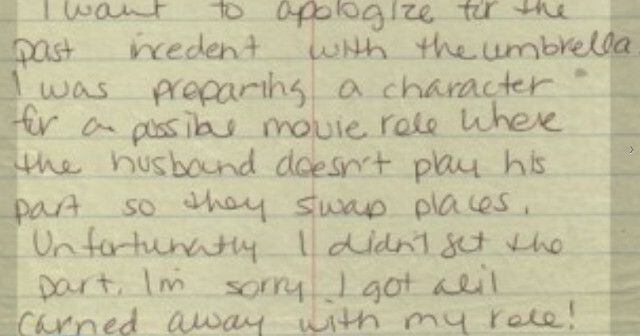 I want to apologize for the
past incedent with the umbrella
I was preparing a character
for a possible movie role where
the husband doesn't play his
part so they swap places.
Unfortunatly I didn't get the
part. I'm sorry I got alil
carried away with my role!